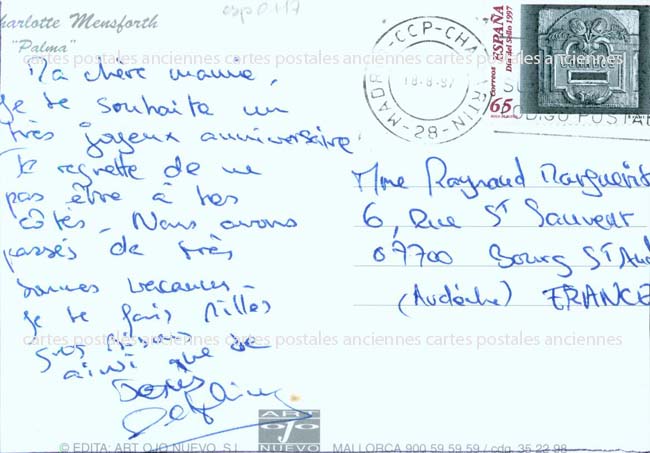 esp0117
Charlotte Mensforth
"Palma"
Ma chère mamie,
Je te souhaite un
très joyeux anniversaire
Je regrette de ne
pas être à tes
côtés. Nous avons
passés de très
bonnes vacances -
Je te fais Milles
Gros Bisous
ainsi que de
MADRID-CCP-CHAMARTIN
18-8-97
-28-
CODIGO POSTAL
Correos ESPAÑA
Día del Sello 1997
65
Mme Raynaud Marguerite
6, Rue St Sauveur
07700 Bourg St And
(Ardèche) FRANCE
cartes postales anciennes cartes postales anciennes cartes postales anciennes
cartes postales anciennes cartes postales anciennes cartes postales anciennes
© EDITA: ART OJO NUEVO, S.L.
ART
OJO
NUEVO
MALLORCA 900 59 59 59 / cdg. 35 22 98